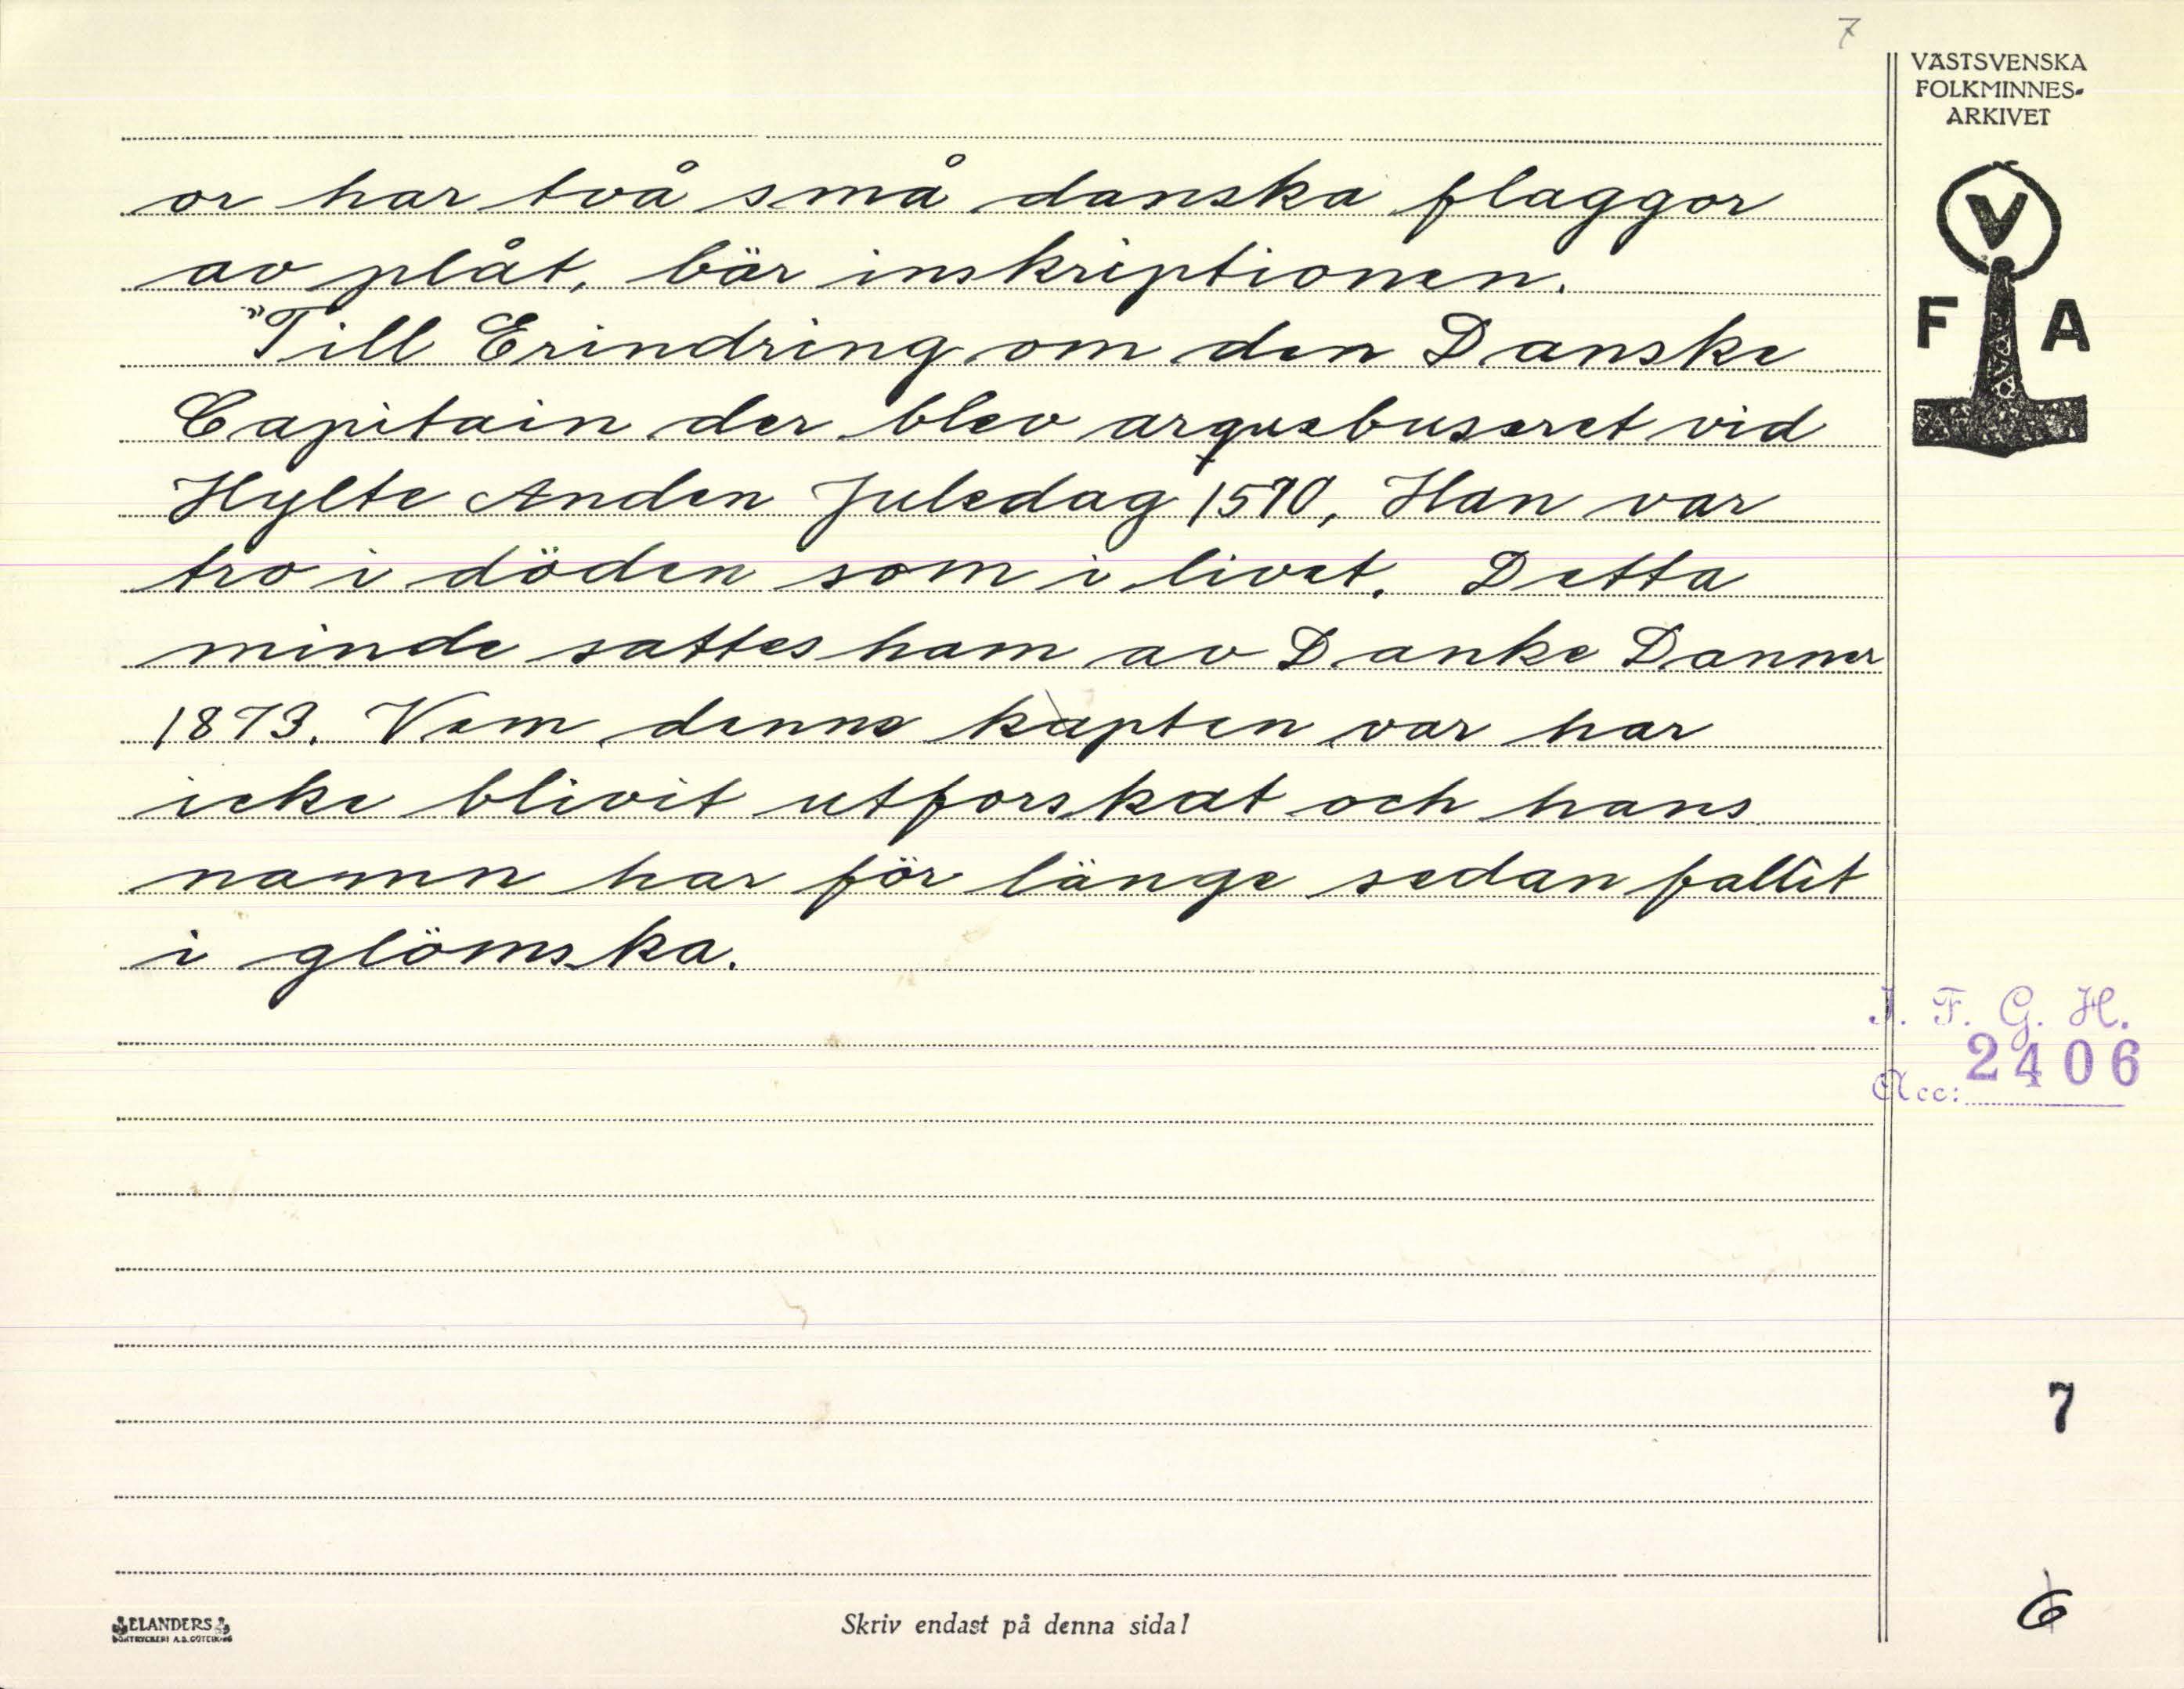 7
VÄSTSVENSKA
FOLKMINNES-
ARKIVET
V
F A
or har två små danska flaggor
av plåt, bär inskriptionen.
"Till Erindring om den Danske
Capitain der blev arquebuseret vid
Hylte Anden Juledag 1570, Han var
tro i döden som i livet. Detta
minde sattes ham av Danke Danner
1873. Vem denne kapten var har
icke blivit utforskat och hans
namn har för länge sedan fallit
i glömska.
I. F. G. H.
Acc: 2406
7
6
ELANDERS
BOKTRYCKERI A.B. GÖTEBORG
Skriv endast på denna sida!